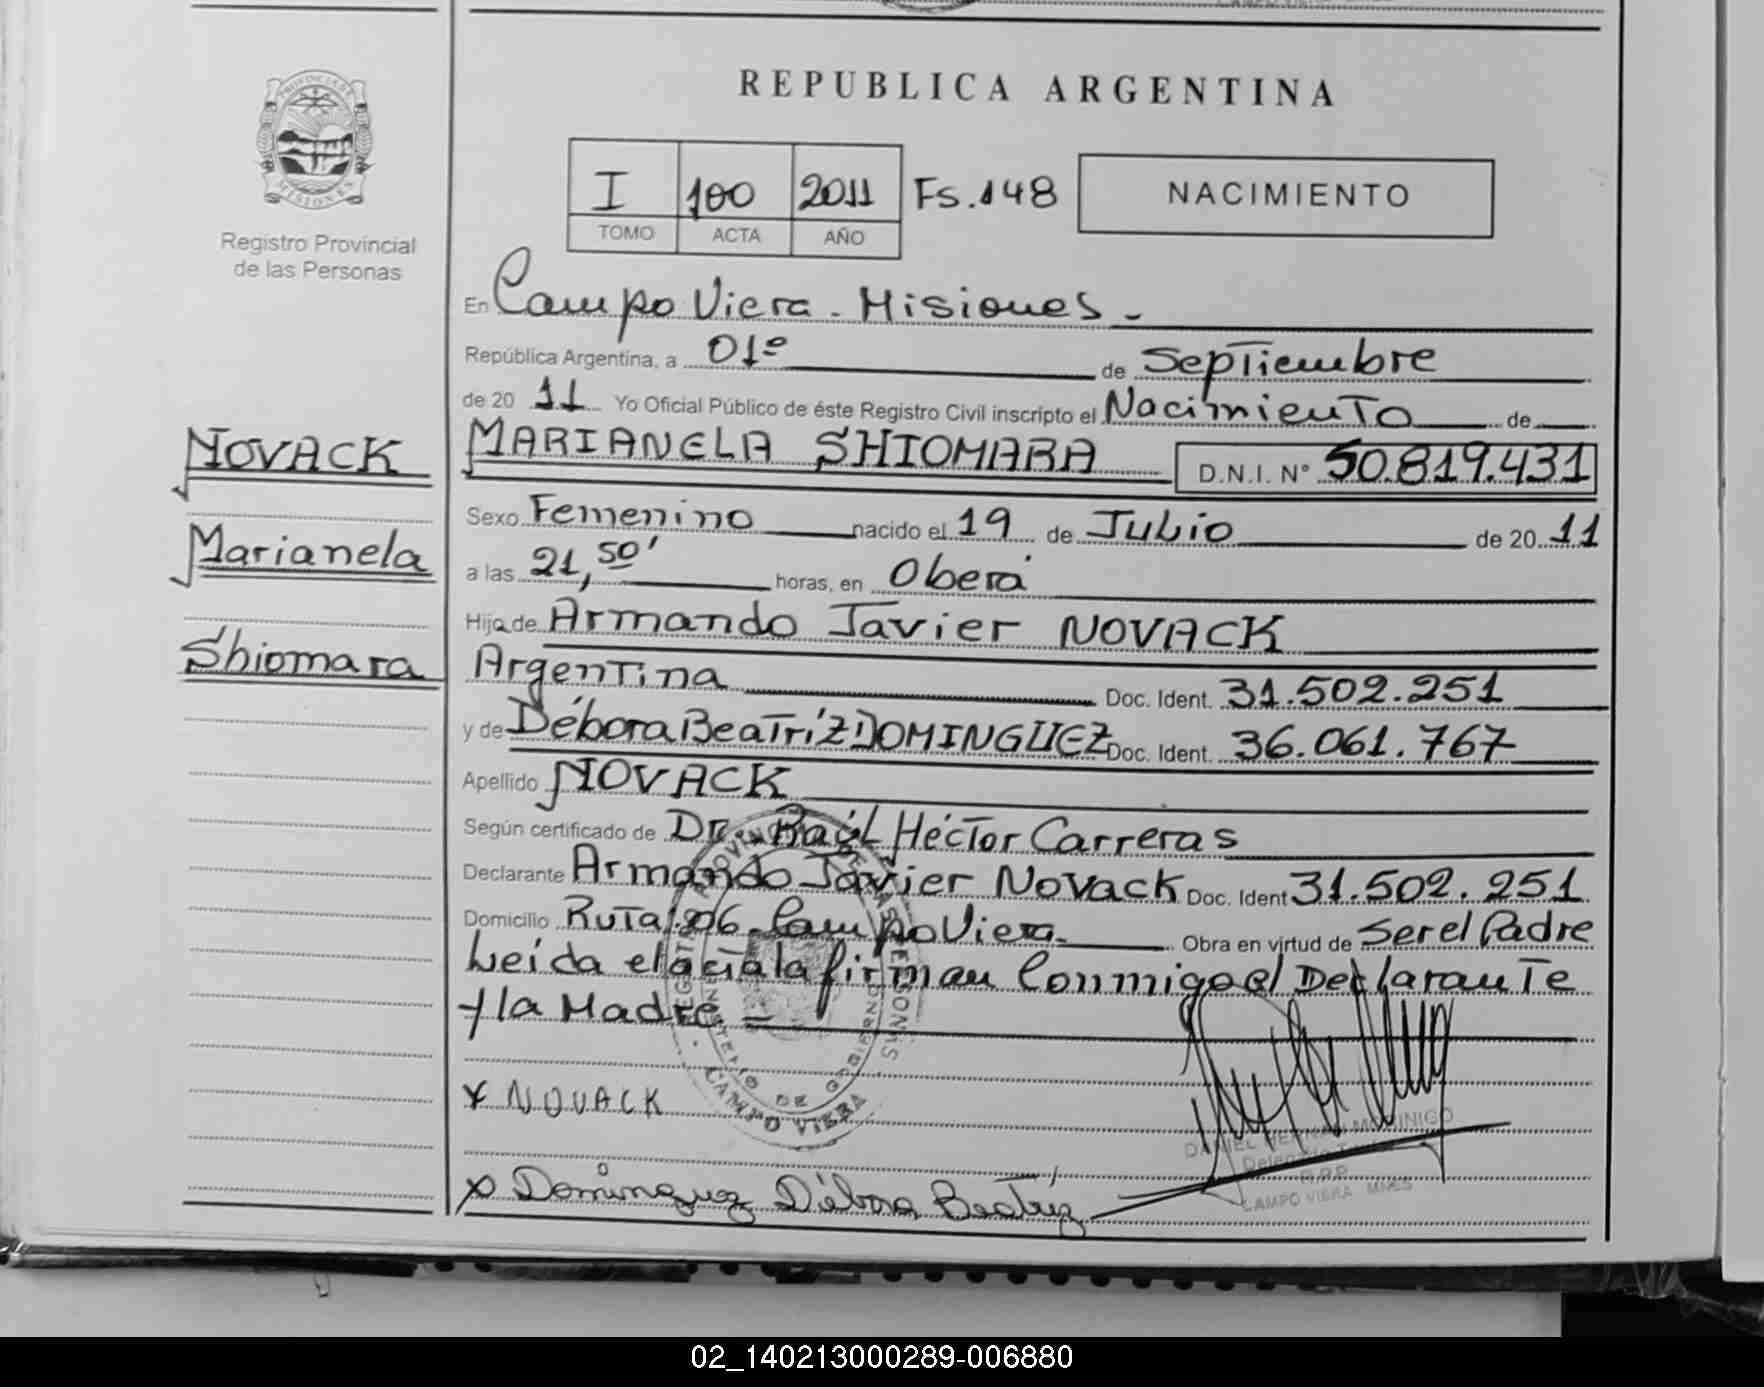 PROVINCIA DE
MISIONES
Registro Provincial
de las Personas
NOVACK
Marianela
Shiomara
REPUBLICA ARGENTINA
I 100 2011 Fs.148
TOMO ACTA AÑO
NACIMIENTO
En Campo Viera - Misiones -
República Argentina, a 01º de Septiembre
de 20 11 Yo Oficial Público de éste Registro Civil inscripto el Nacimiento de
MARIANELA SHIOMARA D.N.I. Nº 50.819.431
Sexo Femenino nacido el 19 de Julio de 20 11
a las 21,50' horas, en Oberá
Hija de Armando Javier NOVACK
Argentina Doc. Ident. 31.502.251
y de Débora Beatríz DOMINGUEZ Doc. Ident. 36.061.767
Apellido NOVACK
Según certificado de Dr. Raúl Héctor Carreras
Declarante Armando Javier Novack Doc. Ident 31.502.251
Domicilio Ruta 206 Campo Viera Obra en virtud de Ser el Padre
Leída el acta la firman Conmigo el Declarante
y la Madre =
x NOVACK
x Dominguez Débora Beatríz
DANIEL HERNAN MORINIGO
R.P.P.
CAMPO VIERA MNES
CAMPO VIERA
02_140213000289-006880